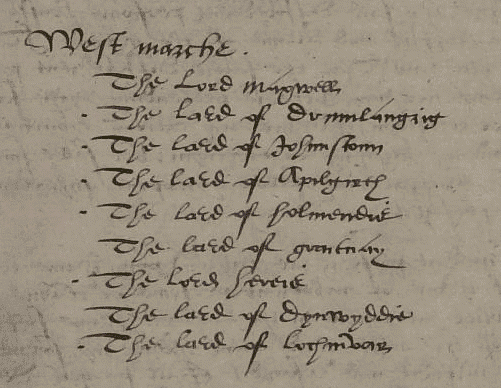 West marche.
The Lord maxwell
- The lard of drumlangrig
- The lard of Johnstoun
- The lard of Apilgirth
- The lard of holmendis
The lard of gratnay
- The lord hereis
The lard of dynwyddie
- The lard of lochinvar